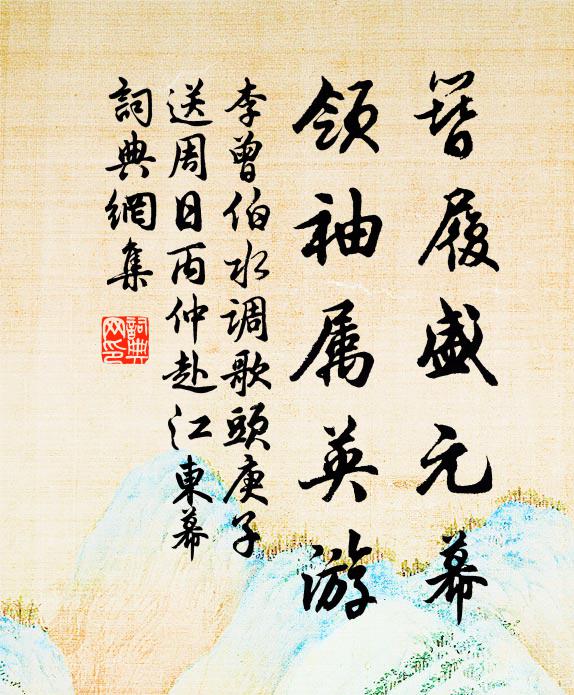 簪履盛元幕
领袖属英游
李曾伯水调歌頭庚子
送周日丙仲赴江東幕
詞典網集
詞典网印